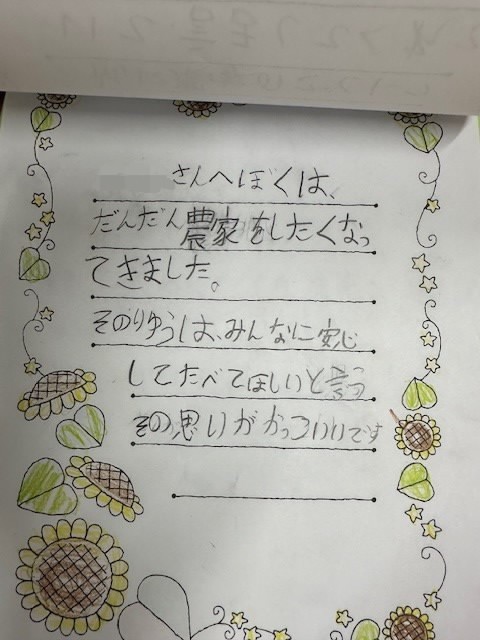 さんへぼくは、
だんだん農家をしたくなっ
てきました。
そのりゆうは、みんなに安心
してたべてほしいと言う
その思いがかっこいいです